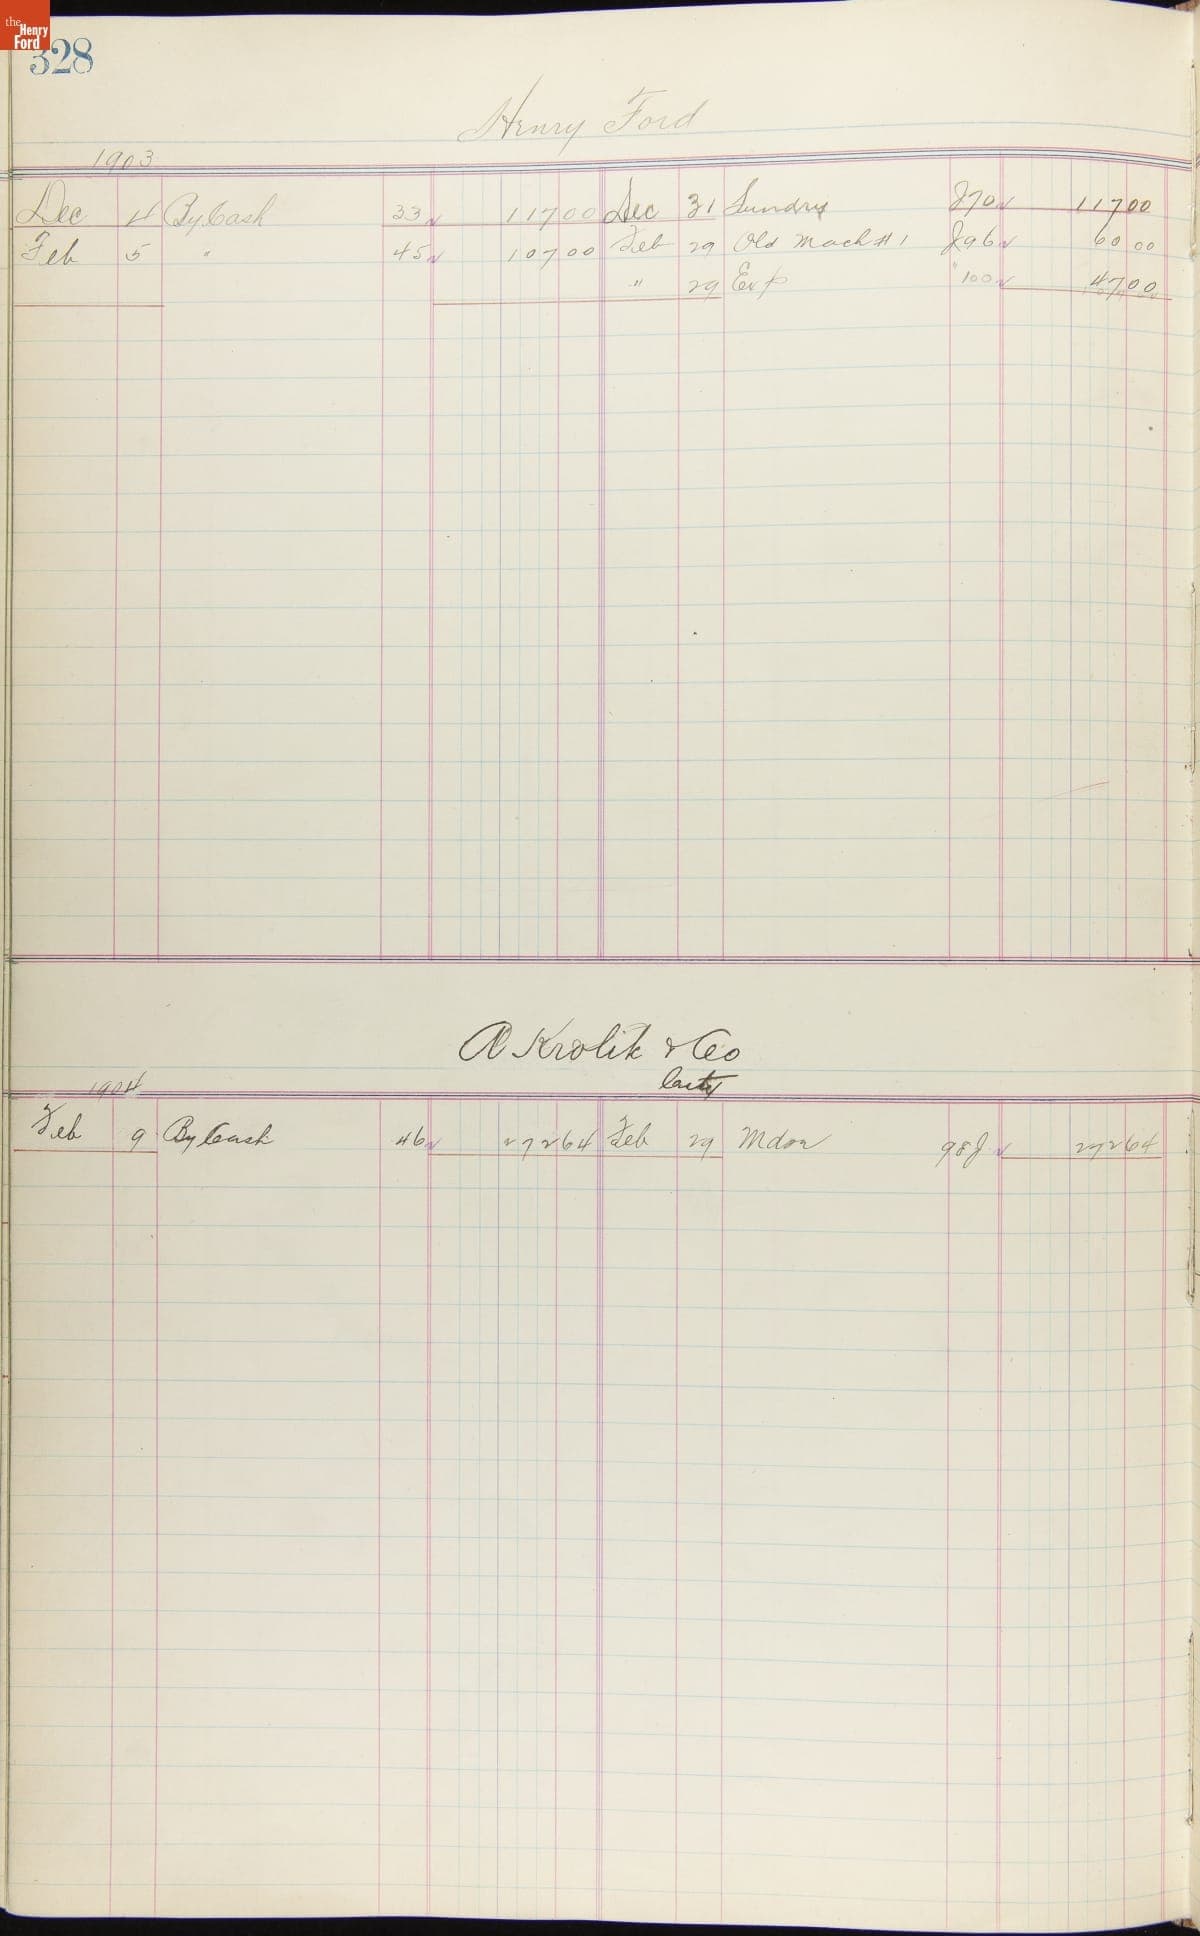 the Henry Ford
328
Henry Ford
1903
Dec 4 By Cash 33 117 00 Dec 31 Sundry J70 117 00
Feb 5 " 45 107 00 Feb 29 Old Mach #1 J96 60 00
" 29 Exp " 100 47 00
A Krolik & Co
City
1904
Feb 9 By Cash 46 272 64 Feb 29 Mdse 98J 272 64